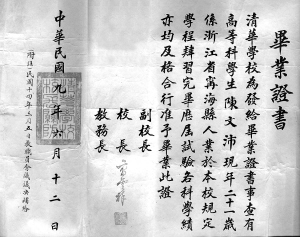 畢業證書
清華學校為發給畢業證書事查有
高等科學生陳文沛現年二十一歲
係浙江省寧海縣人業於本校規定
學程肄習完畢應屆試驗各科學績
亦均及格合行准予畢業此證
副校長
校長
教務長
中華民國九年六月十二日
附注民國十四年三月五日教職員會議議決補給